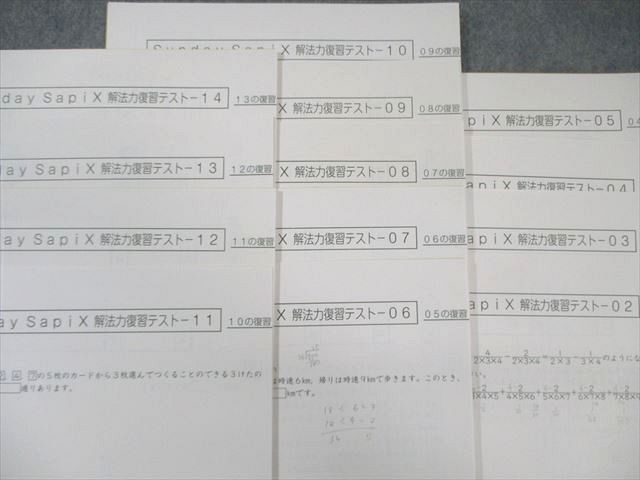 day SapiX 解法力復習テスト－14 13の復習
day SapiX 解法力復習テスト－13 12の復習
day SapiX 解法力復習テスト－12 11の復習
ay SapiX 解法力復習テスト－11 10の復習
4 7の5枚のカードから3枚選んでつくることのできる3けたの
通りあります。
Sunday SapiX 解法力復習テスト－10 09の復習
X 解法力復習テスト－09 08の復習
X 解法力復習テスト－08 07の復習
X 解法力復習テスト－07 06の復習
X 解法力復習テスト－06 05の復習
は時速6km, 帰りは時速9kmで歩きます。このとき、
kmです。
piX 解法力復習テスト－05 04
apiX 解法力復習テスト－04
apiX 解法力復習テスト－03
apiX 解法力復習テスト－02
4/2×3×4 － 2/2×3×4 ＝ 1/2×3 － 1/3×4 のようにな
い。